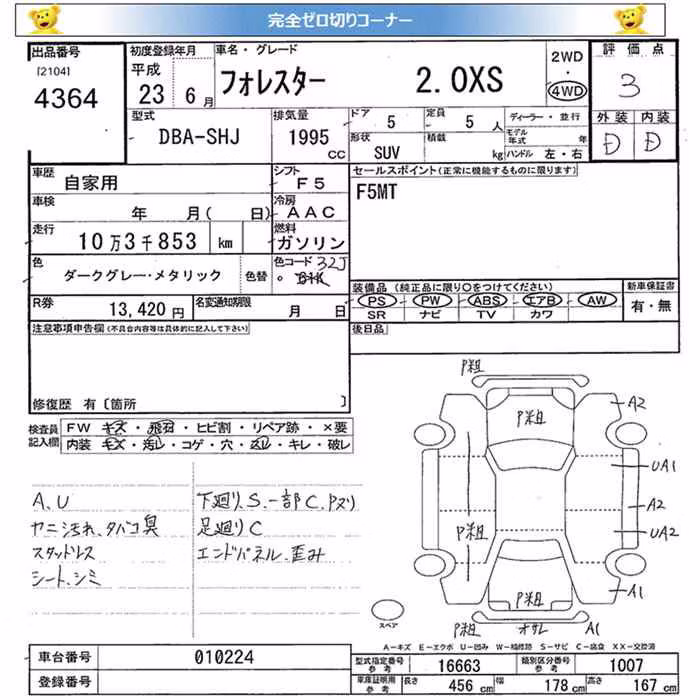 完全ゼロ切りコーナー
出品番号 初度登録年月 車名・グレード 2WD 評価点
[2104] 平成 フォレスター 2.0XS ・ 3
4364 23 6月 4WD
型式 排気量 ドア 5 定員 5人 ディーラー・並行 外装 内装
DBA-SHJ 1995 cc 形状 SUV 積載 kg モデル年式 年 D D
ハンドル 左・右
車歴 自家用 シフト F5 セールスポイント(正常に機能するものに限ります)
車検 年 月( 日) 冷房 AAC F5MT
走行 10万3千853 km 燃料 ガソリン
色 ダークグレー・メタリック 色替 色コード 32J
装備品 (純正品に限り○をつけてください) 新車保証書
R券 13,420円 名変通知期限 月 日 PS PW ABS エアB AW 有・無
SR ナビ TV カワ
注意事項申告欄(不具合内容等は具体的に記入して下さい) 後日品
修復歴 有 [箇所 ]
検査員 FW キズ・飛石・ヒビ割・リペア跡・×要
記入欄 内装 キズ・汚レ・コゲ・穴・スレ・キレ・破レ
A、U 下廻り、S、一部C、Pヌリ
ヤニ汚れ、タバコ臭 足廻りC
スタッドレス エンドパネル、歪み
シート、シミ
P粗
P粗 A2
UA1
A2
P粗 UA2
P粗 A1
スペア P粗 オサレ A1
A－キズ E－エクボ U－凹み W－補修跡 S－サビ C－腐食 XX－交換済
車台番号 010224 型式指定番号 参考 16663 類別区分番号 参考 1007
登録番号 車庫証明用 参考 長さ 456 cm 幅 178 cm 高さ 167 cm